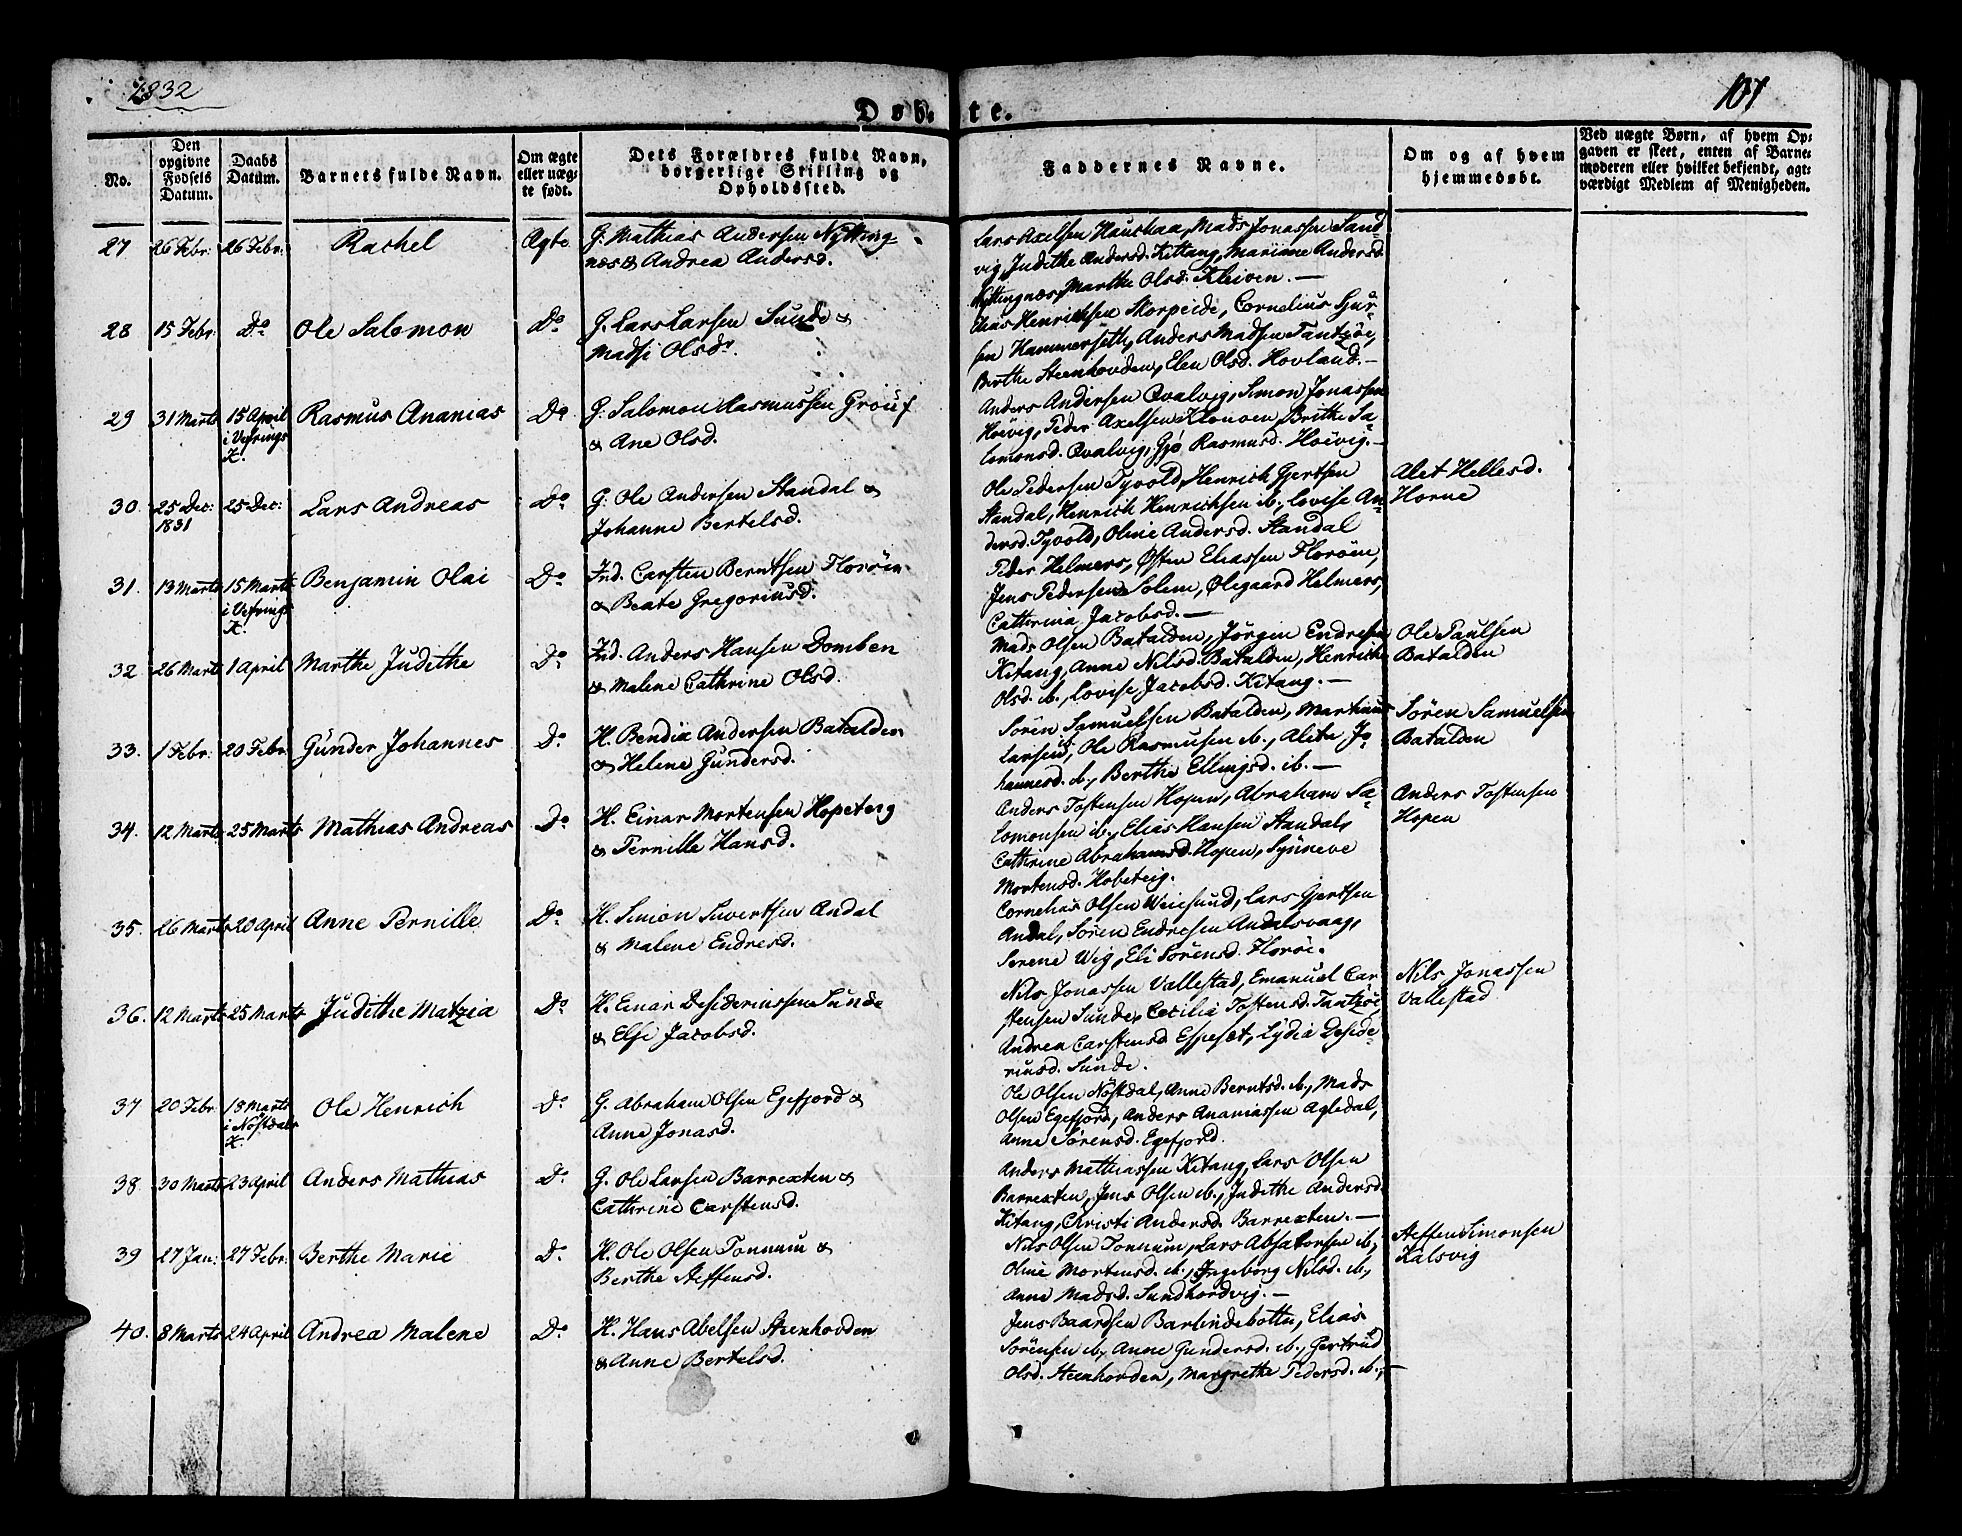 1832
107
Døbte.
No.
Den opgivne Fødsels Datum.
Daabs Datum.
Barnets fulde Navn.
Om ægte eller uægte født.
Dets Forældres fulde Navn, borgerlige Stilling og Opholdssted.
Faddernes Navne.
Om og af hvem hjemmedøbt.
Ved uægte Børn, af hvem Opgaven er skeet, enten af Barnemoderen eller hvilket bekjendt, agtværdigt Medlem af Menigheden.
27 26 Febr: 26 Febr: Rachel Ægte G. Mathias Andersen Nytting-
næs & Andrea Andersd.
Lars Axelsen Hauskaa, Mads Jonassen Sand-
vig, Judithe Andersd. Kittang, Mariane Andersd.
Nyttingnæs, Marthe Olsd. Kleiven. —
28 15 Febr. Do Ole Salomon Do G. Lars Larsen Sunde &
Madsi Olsdr.
Elias Henrichsen Skorpeide, Cornelius Gjer-
sen Hammerseth, Anders Madsen Tantzøe,
Berthe Steenhovden, Elen Olsd. Hovland. —
29 31 Marts 15 April i Vefrings K. Rasmus Ananias Do G. Salomon Rasmussen Grouf
& Ane Olsd.
Anders Andersen Qvalvig, Simon Jonassen
Høivig, Peder Axelsen Klauven, Brithe Sa-
lomonsd. Qvalvig, Gjø Rasmusd. Høivig. —
30. 25 Dec: 1831 25 Dec: Lars Andreas Do G. Ole Andersen Standal &
Johanne Bertelsd.
Ole Pedersen Tyvold, Henrich Gjertsen
Standal, Henrich Henrichsen ib., Lovise An-
dersd. Tyvold, Oline Andersd. Standal
Alet Hellesd.
Horne
31. 13 Marts 15 Marts i Vefrings K. Benjamin Olai Do Ind. Carsten Berntsen Florøen
& Beate Gregoriusd.
Peder Helmers, Østen Eliassen Florøen,
Jens Pedersen Solem, Ølegaard Helmers,
Cathrina Jacobsd. —
32 26 Marts 1 April Marthe Judithe Do Ind. Anders Hansen Domben
& Malene Cathrine Olsd.
Mads Olsen Batalden, Jørgen Endresen
Kitang, Anne Nilsd. Batalden, Henriche
Olsd. ib., Lovise Jacobsd. Kitang. —
Ole Paulsen
Batalden
33. 1 Febr. 20 Febr. Gunder Johannes Do H. Bendix Andersen Batalden
& Helene Gundersd.
Søren Samuelsen Batalden, Martinus
Larsen, Ole Rasmusen ib., Alite Jo-
hannesd. ib., Berthe Ellingsd. ib. —
Søren Samuelsen
Batalden
34. 12 Marts 25 Marts Mathias Andreas Do H. Einar Mortensen Hopeteig
& Pernille Hansd.
Anders Tostensen Hopen, Abraham Sa-
lomonsen ib., Elias Hansen Standal,
Cathrine Abrahamsd. Hopen, Syneve
Mortensd. Hobeteig.
Anders Tostensen
Hopen
35. 26 Marts 20 April Anne Pernille Do H. Simon Sivertsen Andal
& Malene Endresd.
Cornelius Olsen Weiesund, Lars Gjertsen
Andal, Søren Endresen Andalsvaag,
Serene Wig, Eli Sørensd. Florøe.
36. 12 Marts 25 Marts Judithe Matzia Do H. Einar Desideriussen Sunde
& Elsi Jacobsd.
Nils Jonassen Vallestad, Emanuel Car-
stensen Sunde, Cecilia Tostensd. Tantzøe,
Andrea Carstensd Espeset, Lydia Deside-
riusd. Sunde.
Nils Jonassen
Vallestad
37 20 Febr 18 Marts i Nøstdals K. Ole Henrich Do G. Abraham Olsen Egefjord &
Anne Jonasd.
Ole Olsen Nøstdal, Anne Berntsd. ib., Mads
Olsen Egefjord, Anders Ananiassen Agledal,
Anne Sørensd. Egefjord.
38. 30 Marts 23 April Anders Mathias Do G. Ole Larsen Barrexten &
Cathrine Carstensd.
Anders Mathiassen Kitang, Lars Olsen
Barrexten, Jens Olsen ib., Judithe Andersd.
Kitang, Christi Andersd. Barrexten. —
39 27 Jan: 27 Febr. Berthe Marie Do H. Ole Olsen Tonnum &
Berthe Steffensd.
Nils Olsen Tonnum, Lars Absalonsen ib.,
Oline Mortensd. ib., Ingeborg Nilsd. ib.,
Anne Madsd. Sundhordvig. —
Steffen Simonsen
Kalsvig
40. 8 Marts 24 April Andrea Malene Do H. Hans Abelsen Steenhovden
& Anne Bertelsd.
Jens Baardsen Barlindebotten, Elias
Sørensen ib., Anne Gundersd. ib., Gertrud
Olsd. Steenhovden, Margrethe Pedersd. ib., —